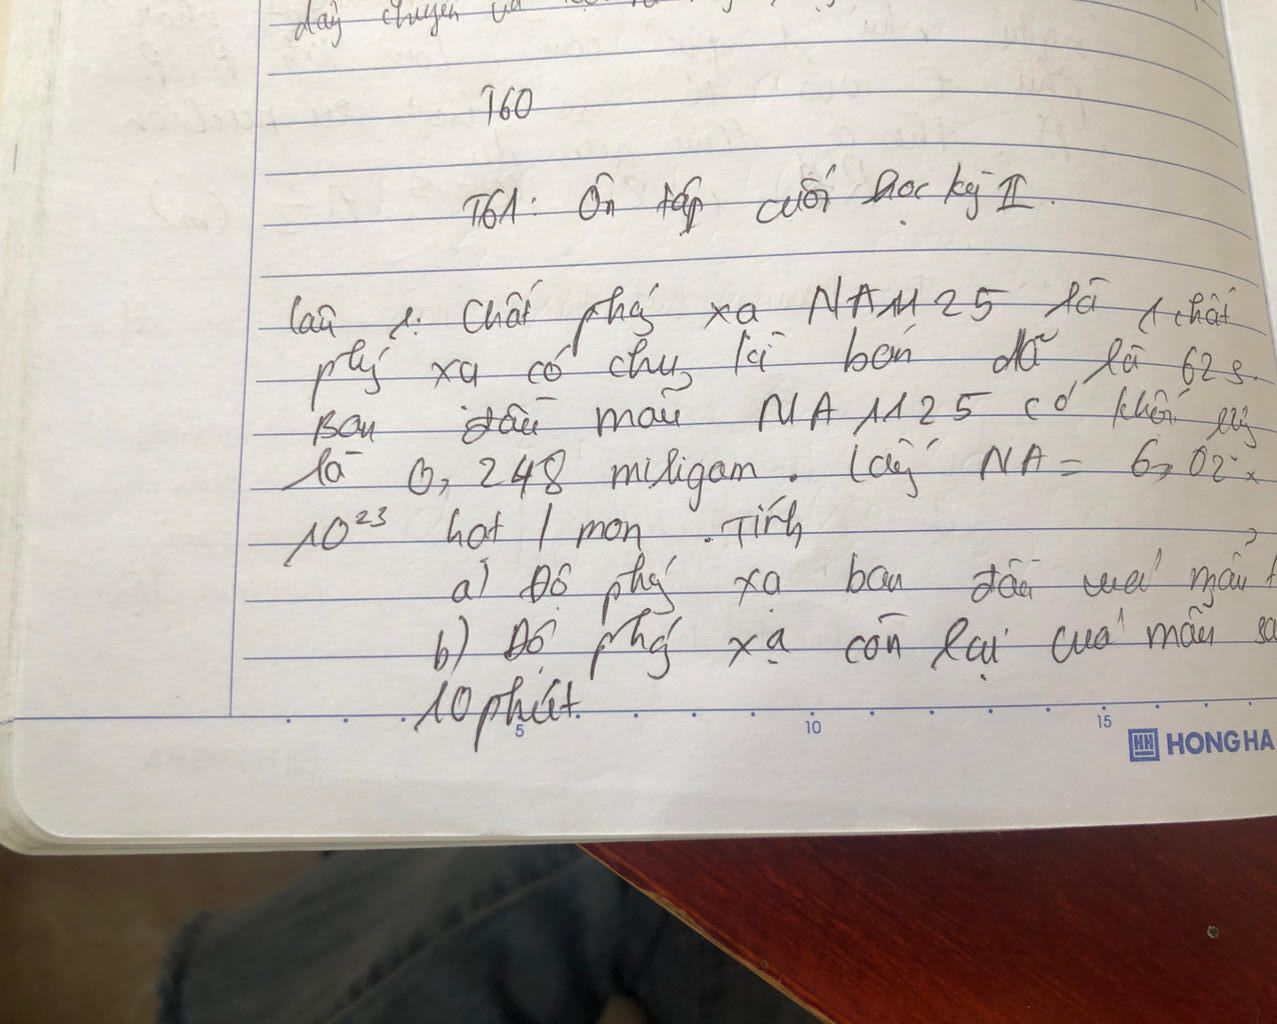 dây chuyền và
T60
T61: Ôn tập cuối học kỳ II.
Câu 1: Chất phóng xạ NA1125 là 1 chất
phóng xạ có chu kì bán rã là 62s.
Ban đầu mẫu NA1125 có khối lượng
là 0,248 miligam. Lấy NA = 6,02 x
10²³ hạt / mon. Tính
a) Độ phóng xạ ban đầu của mẫu
b) Độ phóng xạ còn lại của mẫu
10 phút
5 10 15
HH HONG HA